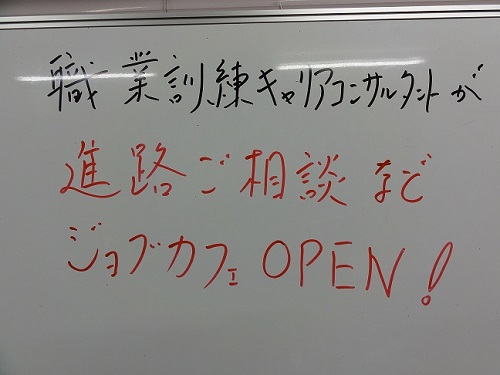 職業訓練キャリアコンサルタントが
進路ご相談など
ジョブカフェ OPEN!